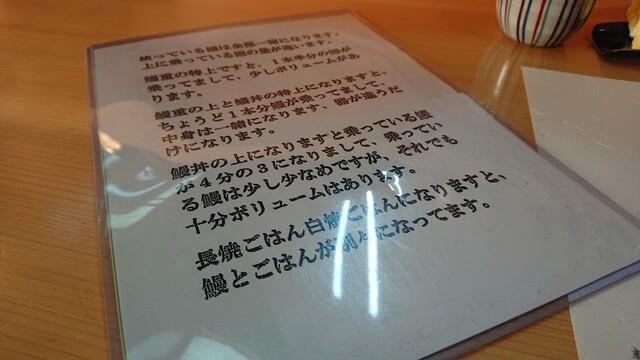 使っている鰻は全部一緒になります。
上に乗っている鰻の量が違います。
鰻重の特上ですと、1本半分の鰻が
乗ってまして、少しボリュームがあ
ります。
鰻重の上と鰻丼の特上になりますと、
ちょうど1本分鰻が乗ってまして、
中身は一緒になります、器が違うだ
けになります。
鰻丼の上になりますと乗っている鰻
が4分の3になりまして、乗ってい
る鰻は少し少なめですが、それでも
十分ボリュームはあります。
長焼ごはん白焼ごはんになりますと、
鰻とごはんが別々になってます。